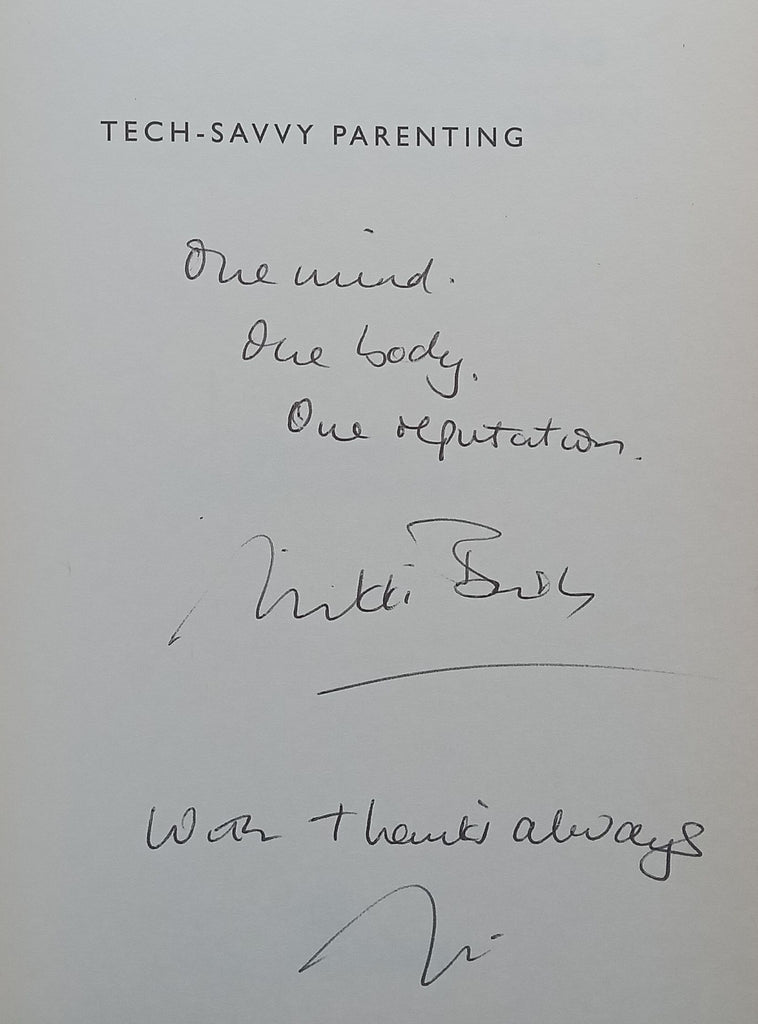 TECH-SAVVY PARENTING
One mind.
One body.
One reputation.
Nikki Bush
With thanks always
Ni